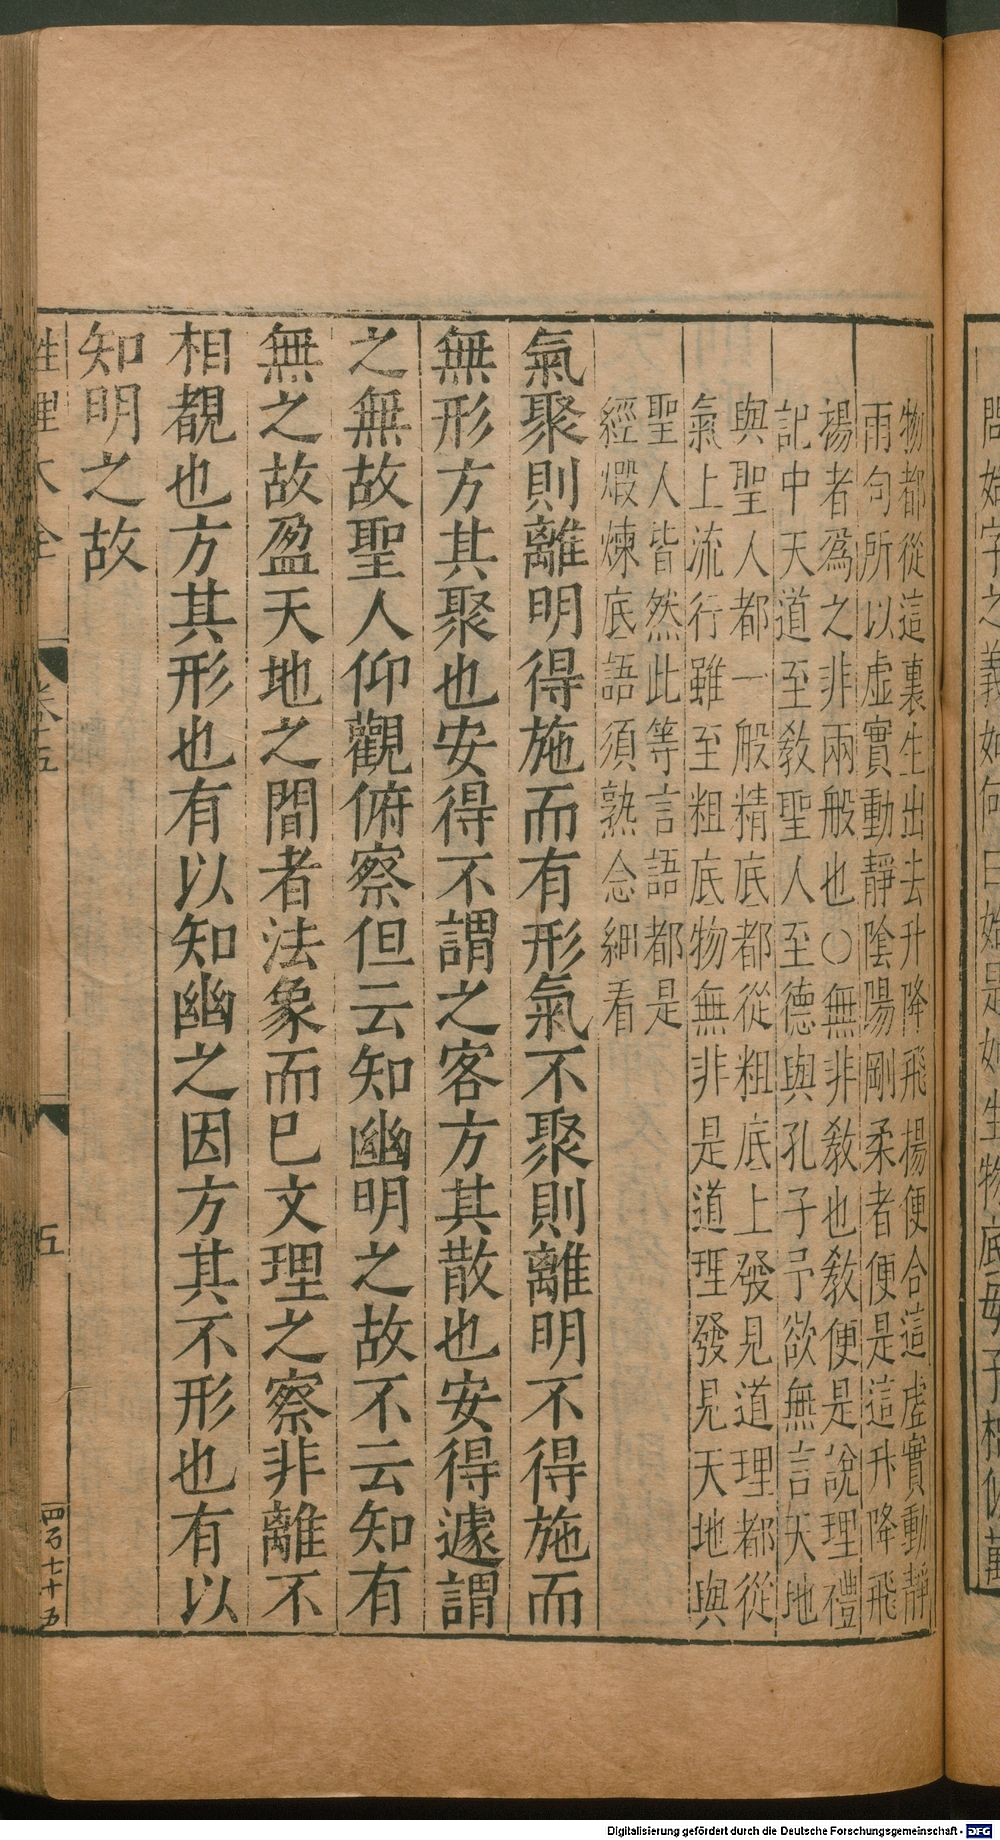 物都從這裏生出去升降飛揚便合這虛實動靜
雨句所以虛實動靜陰陽剛柔者便是這升降飛
揚者爲之非兩般也○無非教也教便是說理禮
記中天道至教聖人至德與孔子予欲無言天地
與聖人都一般精底都從粗底上發見道理都從
氣上流行雖至粗底物無非是道理發見天地與
聖人皆然此等言語都是
經煅煉底語須熟念細看
氣聚則離明得施而有形氣不聚則離明不得施而
無形方其聚也安得不謂之客方其散也安得遽謂
之無故聖人仰觀俯察但云知幽明之故不云知有
無之故盈天地之間者法象而已文理之察非離不
相覩也方其形也有以知幽之因方其不形也有以
知明之故
性理大全 卷五 五 四百七十五
Digitalisierung gefördert durch die Deutsche Forschungsgemeinschaft - DFG